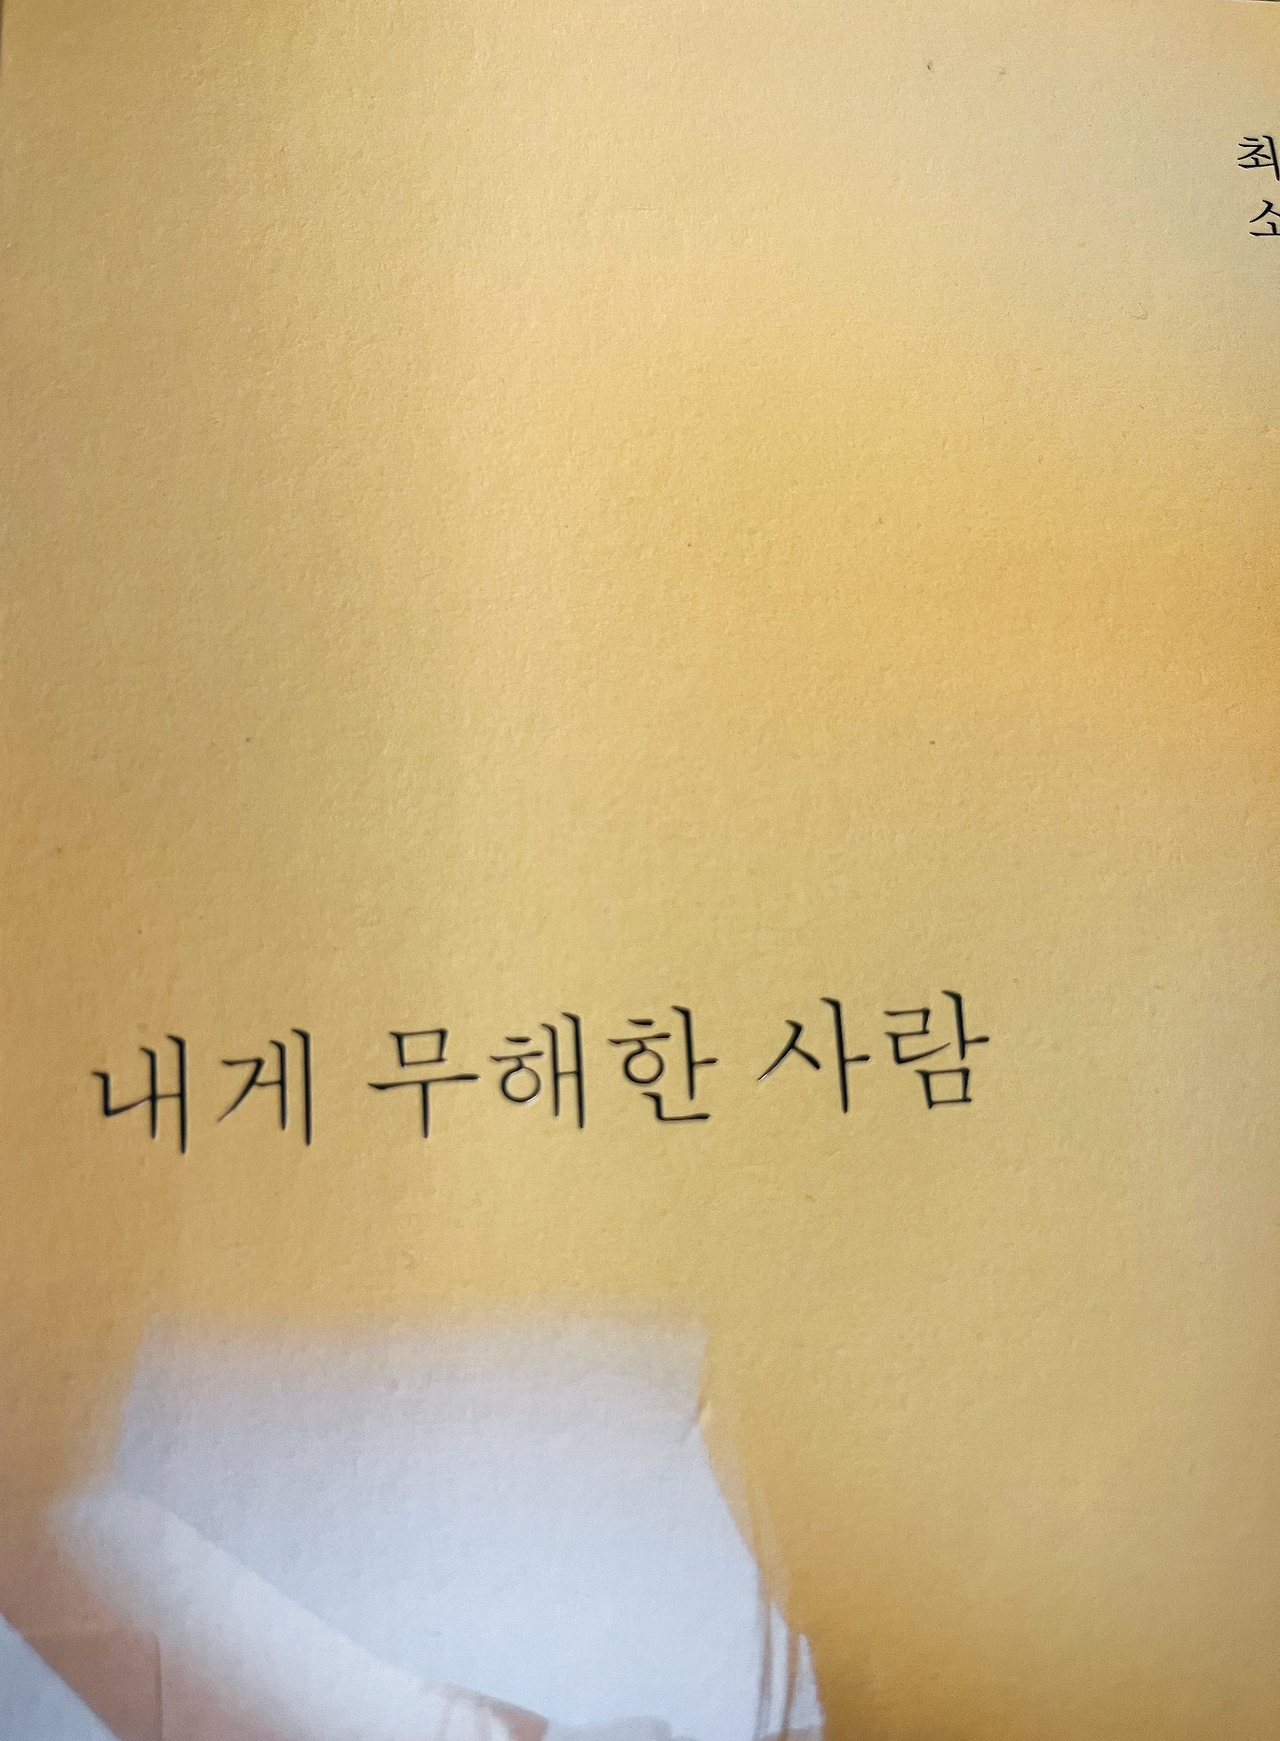 최
소
내게 무해한 사람